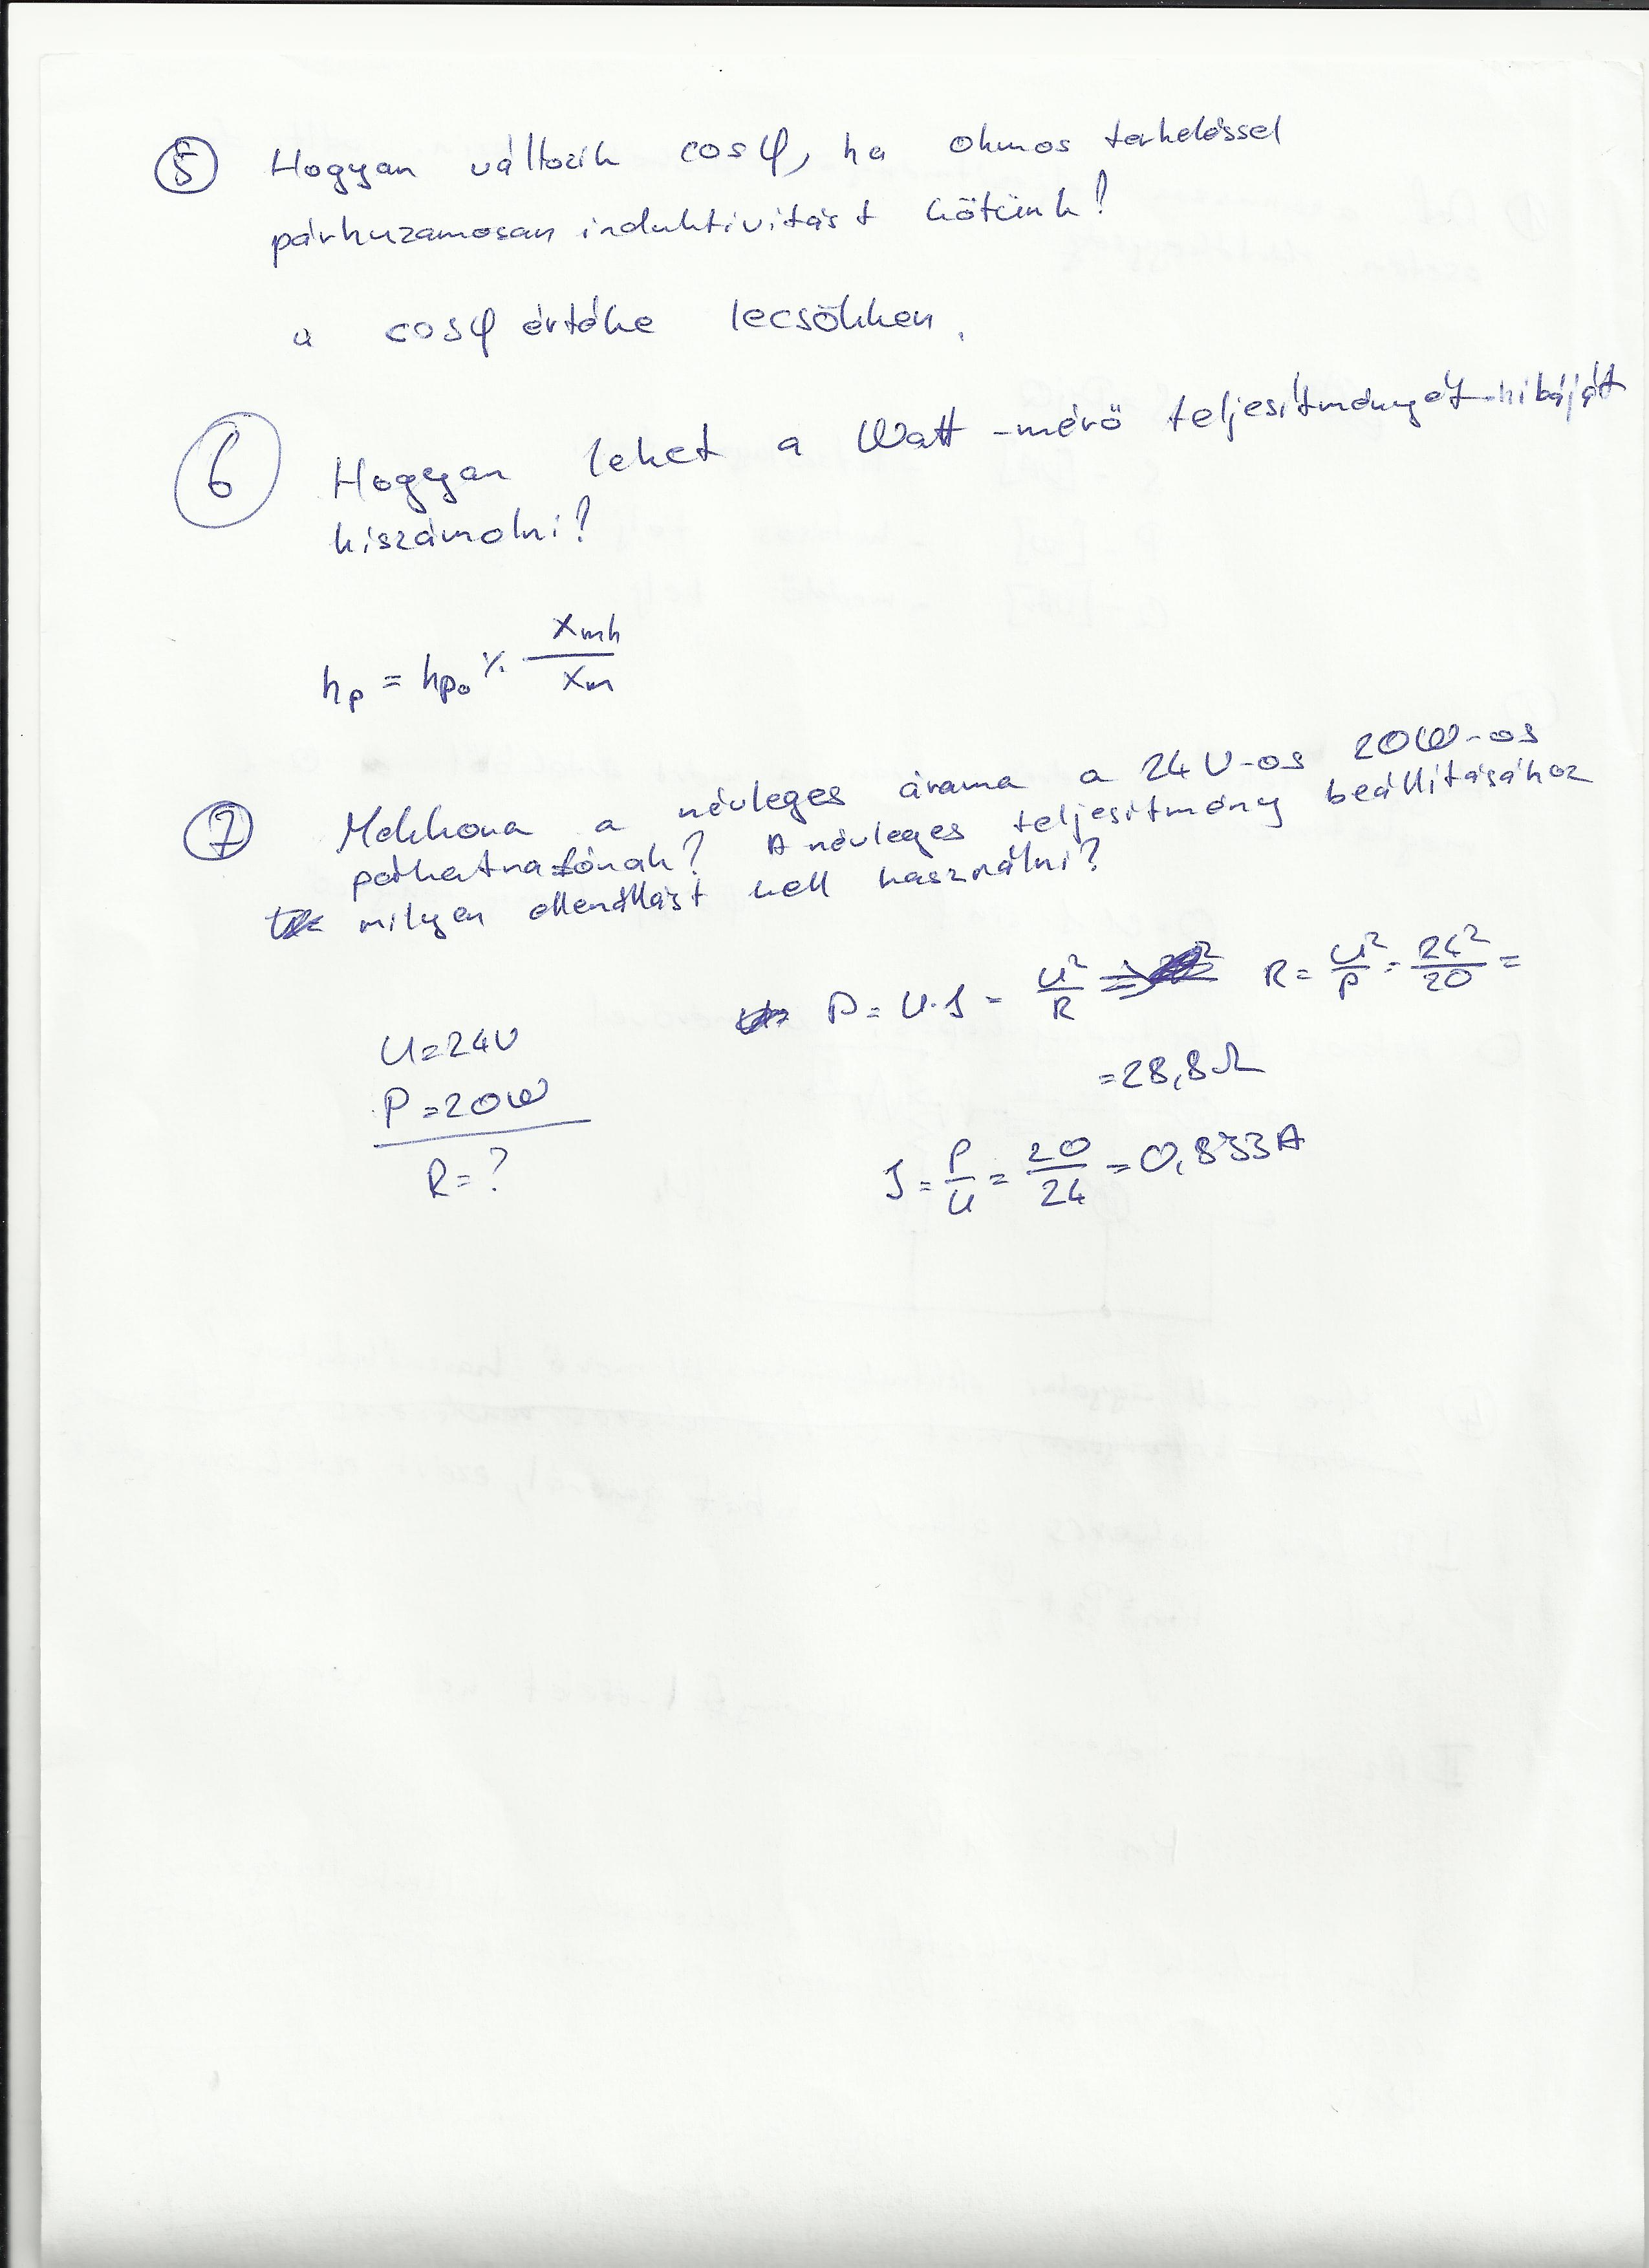 ⑤ Hogyan változik cosφ, ha ohmos terheléssel
párhuzamosan induktivitást kötünk?
a cosφ értéke lecsökken.
⑥ Hogyan lehet a Watt-mérő teljesítményét hibáját
kiszámolni?
hp = hpo % Xmh / Xm
⑦ Mekkora a névleges árama a 24V-os 20W-os
pótkatnafónak? A névleges teljesítmény beállításához
milyen ellenállást kell használni?
P = U·I = U²/R R = U²/P = 24²/20 =
U=24V
= 28,8Ω
P=20W
R=?
I = P/U = 20/24 = 0,833A